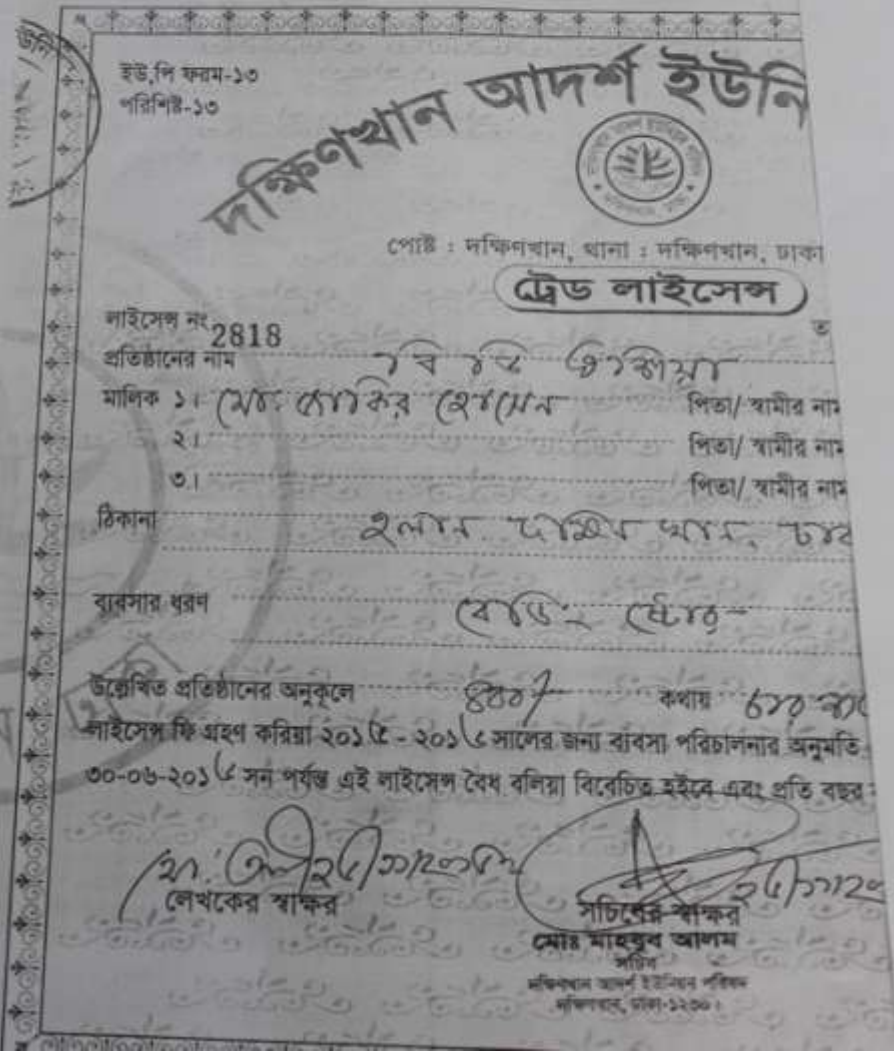 ইউ,পি ফরম-১৩
পরিশিষ্ট-১৩
দক্ষিণখান আদর্শ ইউনি
পোষ্ট : দক্ষিণখান, থানা : দক্ষিণখান, ঢাকা
ট্রেড লাইসেন্স
লাইসেন্স নং 2818
প্রতিষ্ঠানের নাম বি বি
মালিক ১। মোঃ জাকির হোসেন পিতা/ স্বামীর নাম
২। পিতা/ স্বামীর নাম
৩। পিতা/ স্বামীর নাম
ঠিকানা হলান দক্ষিন খান, ঢাকা
ব্যবসার ধরণ বেডিং ষ্টোর
উল্লেখিত প্রতিষ্ঠানের অনুকূলে ৪০০/- কথায় চার শত
লাইসেন্স ফি গ্রহণ করিয়া ২০১৫ - ২০১৬ সালের জন্য ব্যবসা পরিচালনার অনুমতি
৩০-০৬-২০১৬ সন পর্যন্ত এই লাইসেন্স বৈধ বলিয়া বিবেচিত হইবে এবং প্রতি বছর
লেখকের স্বাক্ষর
সচিবের স্বাক্ষর
মোঃ মাহবুব আলম
সচিব
দক্ষিণখান আদর্শ ইউনিয়ন পরিষদ
দক্ষিণখান, ঢাকা-১২৩০।